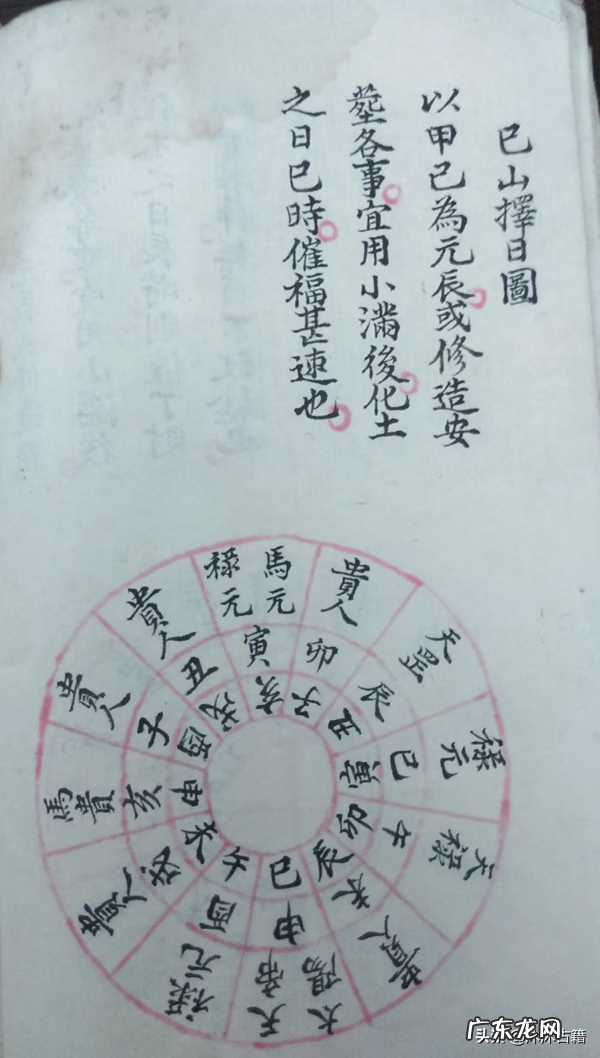 巳山擇日圖
以甲己為元辰或修造安
塟各事宜用小滿後化土
之日巳時催福甚速也
馬元
祿元
貴人
天罡
祿元
天祿
貴人
太陽
天帝
祿元
貴人
馬貴
貴人
貴人
寅
卯
辰
巳
午
未
申
酉
戌
亥
子
丑
亥
子
丑
寅
卯
辰
巳
午
未
申
酉
戌
广东龙网